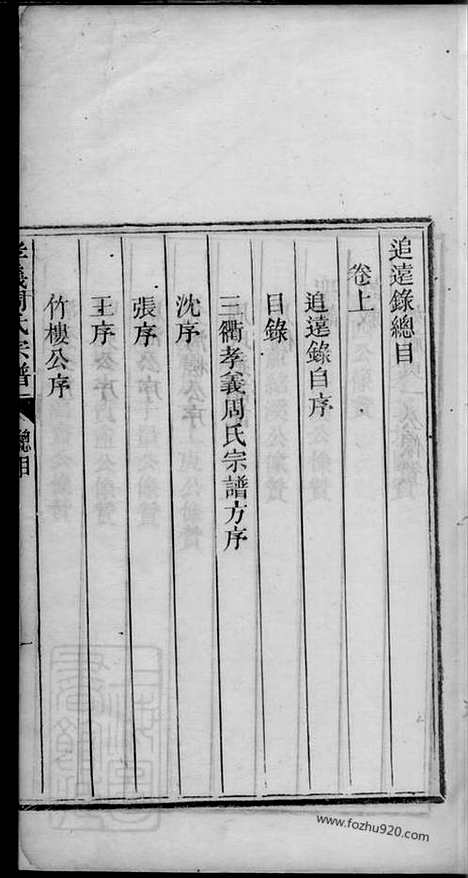 追遠錄總目
卷上
追遠錄自序
目錄
三衢孝義周氏宗譜方序
沈序
張序
王序
竹樓公序
孝義周氏宗譜
總目
www.fozhu920.com